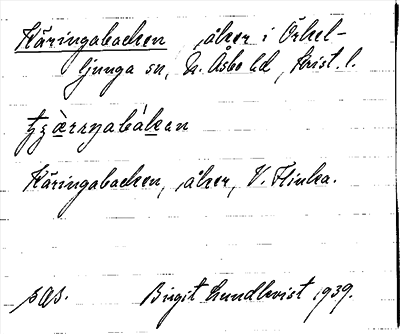 Käringabacken åker i Örkel-
ljunga sn, N. Åsbo hd, Krist. l.
Käringabacken, åker, V. Flinka.
sas. Birgit Lundkvist 1939.